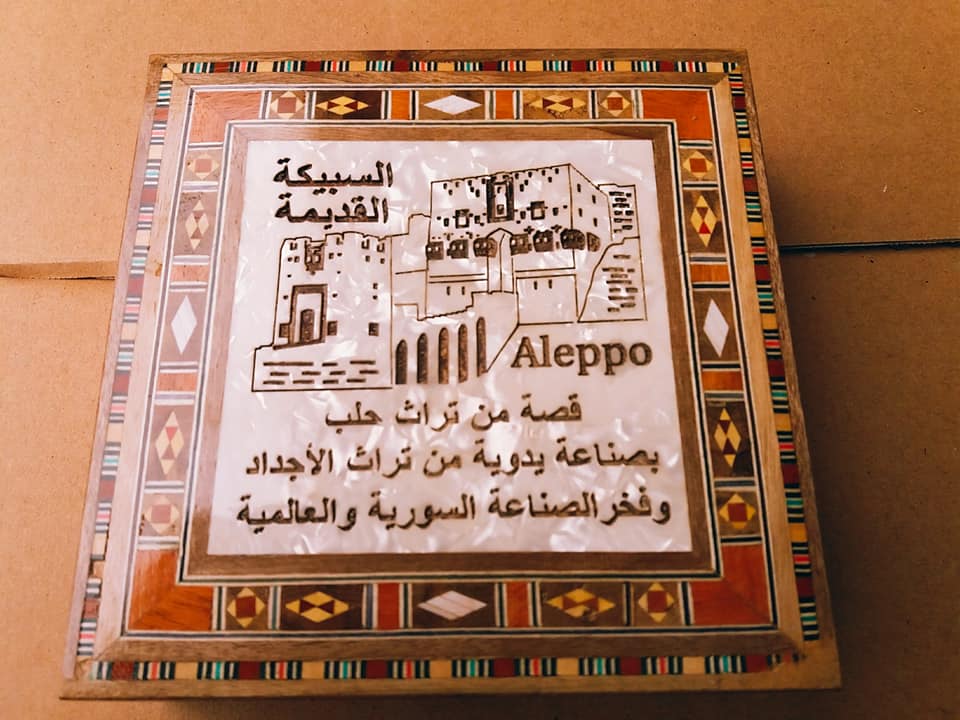 السبيكة
القديمة
Aleppo
قصة من تراث حلب
بصناعة يدوية من تراث الأجداد
وفخر الصناعة السورية والعالمية